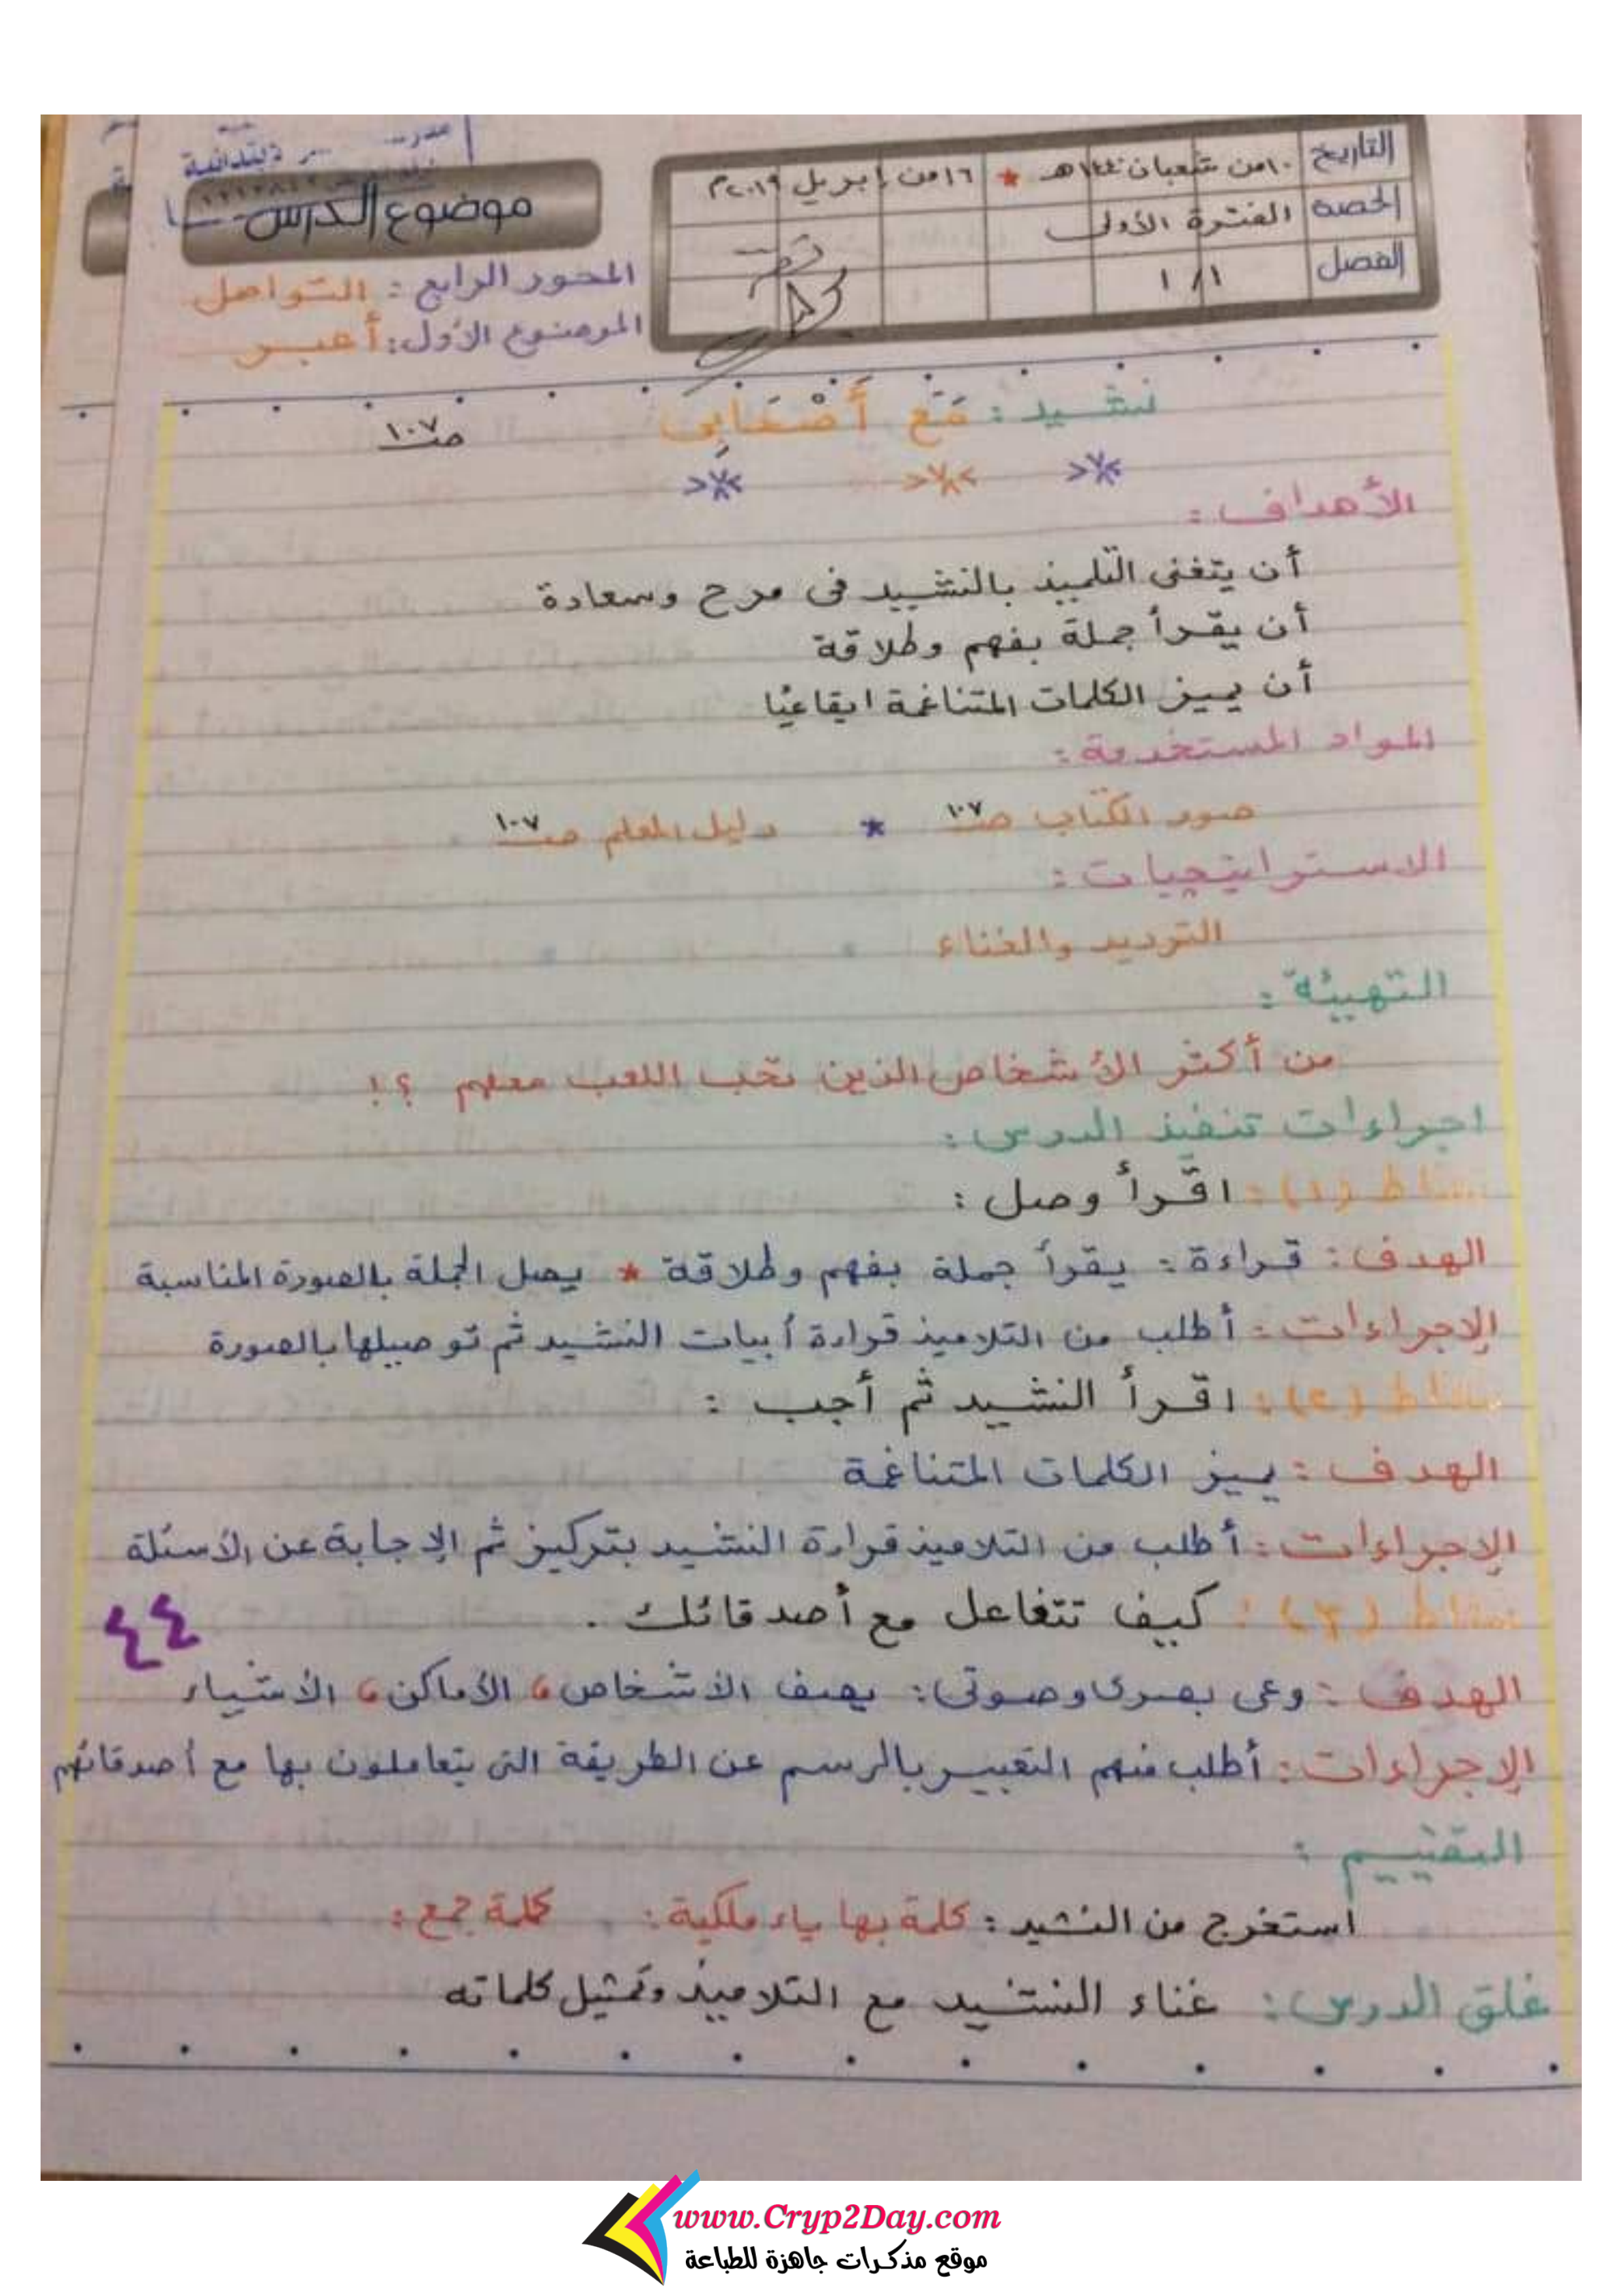 التاريخ ١٠ من شعبان ١٤٤٠هـ * ١٦ من إبريل ٢٠١٩م
الحصة الفترة الأولى
الفصل ١/١
موضوع الدرس
المحور الرابع : التواصل
الموضوع الأول : أعبر
نشيد : مَعَ أَصْحَابِي صـ ١٠٧
الأهداف :
أن يتغنى التلميذ بالنشيد فى مرح وسعادة
أن يقرأ جملة بفهم وطلاقة
أن يميز الكلمات المتناغمة ايقاعيًا
المواد المستخدمة :
صور الكتاب صـ ١٠٧ * دليل المعلم صـ ١٠٧
الاستراتيجيات :
الترديد والغناء
التهيئة :
من أكثر الأشخاص الذين تحب اللعب معهم ؟!
اجراءات تنفيذ الدرس :
نشاط (١) : اقرأ وصل :
الهدف : قراءة : يقرأ جملة بفهم وطلاقة * يصل الجملة بالصورة المناسبة
الإجراءات : أطلب من التلاميذ قراءة أبيات النشيد ثم توصيلها بالصورة
نشاط (٢) : اقرأ النشيد ثم أجب :
الهدف : يميز الكلمات المتناغمة
الإجراءات : أطلب من التلاميذ قراءة النشيد بتركيز ثم الإجابة عن الأسئلة
نشاط (٣) : كيف تتفاعل مع أصدقائك .
٤٤
الهدف : وعى بصرى وصوتى : يصف الأشخاص ، الأماكن ، الأشياء
الإجراءات : أطلب منهم التعبير بالرسم عن الطريقة التى يتعاملون بها مع أصدقائهم
التقييم :
استخرج من النشيد : كلمة بها ياء ملكية : كلمة جمع :
غلق الدرس : غناء النشيد مع التلاميذ وتمثيل كلماته
www.Cryp2Day.com
موقع مذكرات جاهزة للطباعة